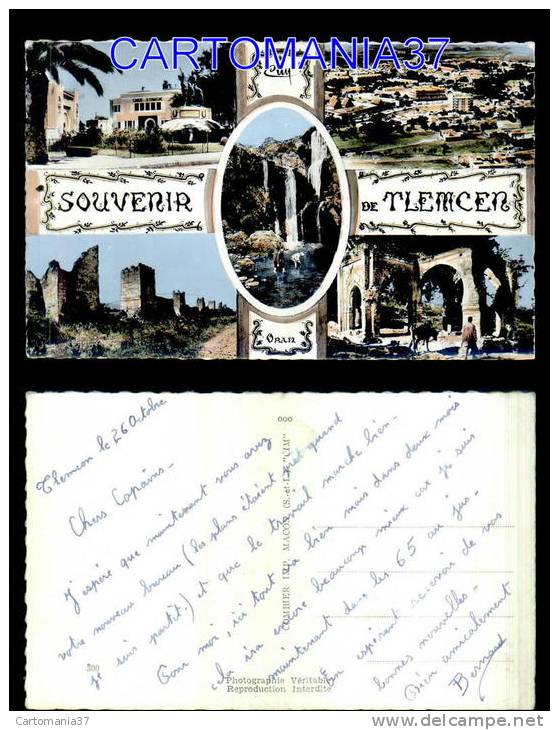 CARTOMANIA37
SOUVENIR
DE TLEMCEN
ORAN
Tlemcen le 26 Octobre
Chers Copains -
J'espère que maintenant vous avez
votre nouveau bureau (les plans étaient prêts quand
je suis parti !) et que le travail marche bien -
Pour moi, ici tout va bien mais dans deux mois
cela ira encore beaucoup mieux car je suis
maintenant dans les 65 au jus -
En espérant recevoir de vos
bonnes nouvelles -
Bien amicalement
Bernard
ooo
COMBIER IMP. MACON (S.-et-L.) "CIM"
300
Photographie Véritable
Reproduction Interdite
Cartomania37
www.delcampe.net